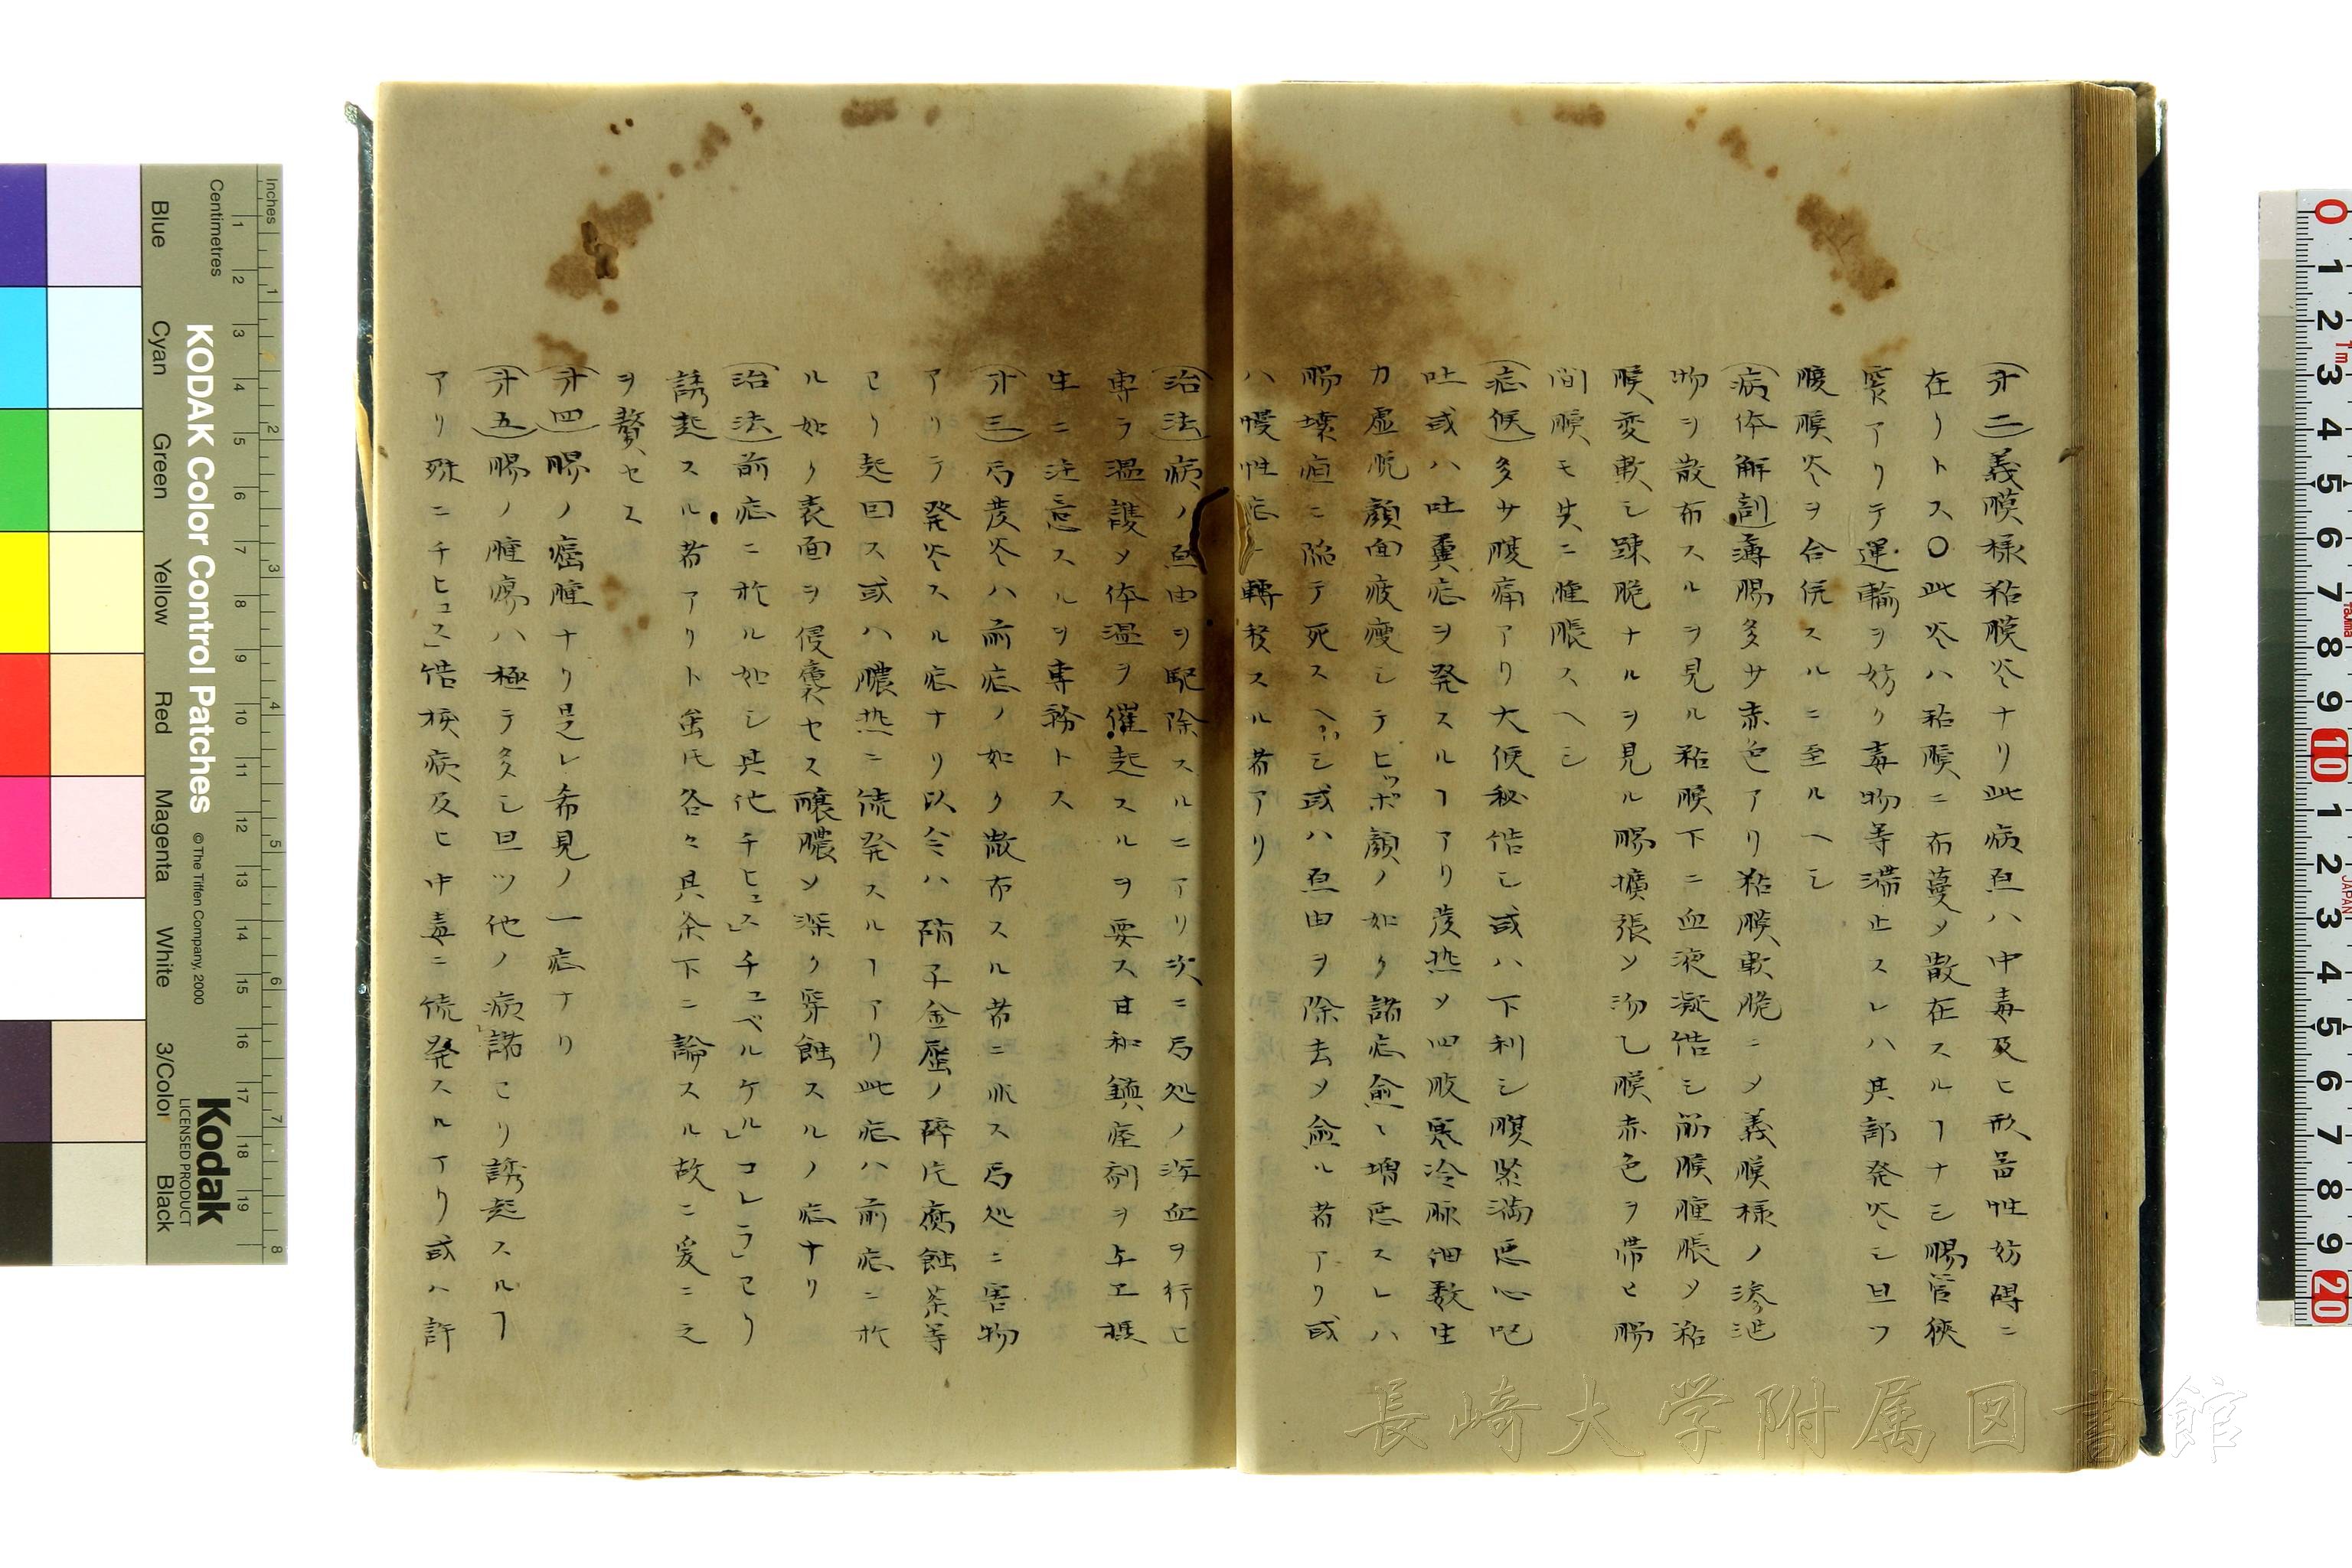 (才二)義膜様粘膜炎ナリ此病原ハ中毒及ヒ形器性妨碍ニ
在リトス〇此炎ハ粘膜ニ布蔓〆散在スルヿナシ腸管狭
窄アリテ運輸ヲ妨ケ毒物等滞止スレハ其部発炎シ且ツ
腹膜炎ヲ合併スルニ至ルヘシ
(病体解剖)薄腸多サ赤色アリ粘膜軟脆ニ〆義膜様ノ滲泄
物ヲ散布スルヲ見ル粘膜下ニ血液凝結シ筋膜腫脹〆粘
膜変軟シ疎脆ナルヲ見ル腸擴張〆沕乙膜赤色ヲ帯ヒ腸
間膜モ失ニ腫脹スヘシ
(症候)多サ腹痛アリ大便秘結シ或ハ下利シ腹緊満悪心呕
吐或ハ吐糞症ヲ発スルヿアリ発熱〆四肢寒冷脈細数生
力虚脱顔面疲痩シテヒッポ顔ノ如ク諸症愈々増悪スレハ
腸壊疽ニ陥テ死スヘシ或ハ原由ヲ除去〆愈ル者アリ或
ハ慢性症ニ轉移スル者アリ
(治法)病ノ原由ヲ駆除スルニアリ次ニ局処ノ瀉血ヲ行ヒ
専ラ温護〆体温ヲ催起スルヲ要ス甘和鎮痙剤ヲ与ヱ摂
生ニ注意スルヲ専務トス
(才三)局発炎ハ前症ノ如ク散布スル者ニ非ス局処ニ害物
アリテ発炎スル症ナリ以令ハ硝子金屑ノ砕片腐蝕薬等
ヨリ起因ス或ハ膿熱ニ続発スルヿアリ此症ハ前症ニ於
ル如ク表面ヲ侵襲セス醸膿〆深ク穿蝕スルノ症ナリ
(治法)前症ニ於ル如シ其他チヒュス」チュベルケル」コレラ」ヨリ
誘起スル者アリト虽𪜈各々其条下ニ論スル故ニ爰ニ之
ヲ贅セス
(才四)腸ノ癌腫ナリ是レ希見ノ一症ナリ
(才五)腸ノ腫瘍ハ極テ多シ且ツ他ノ病諸ヨリ誘起スルヿ
アリ殊ニチヒュス」結核病及ヒ中毒ニ続発スルアリ或ハ許
KODAK Color Control Patches
© The Tiffen Company, 2000
Kodak
LICENSED PRODUCT
Inches
Centimetres
Blue
Cyan
Green
Yellow
Red
Magenta
White
3/Color
Black
長崎大学附属図書館